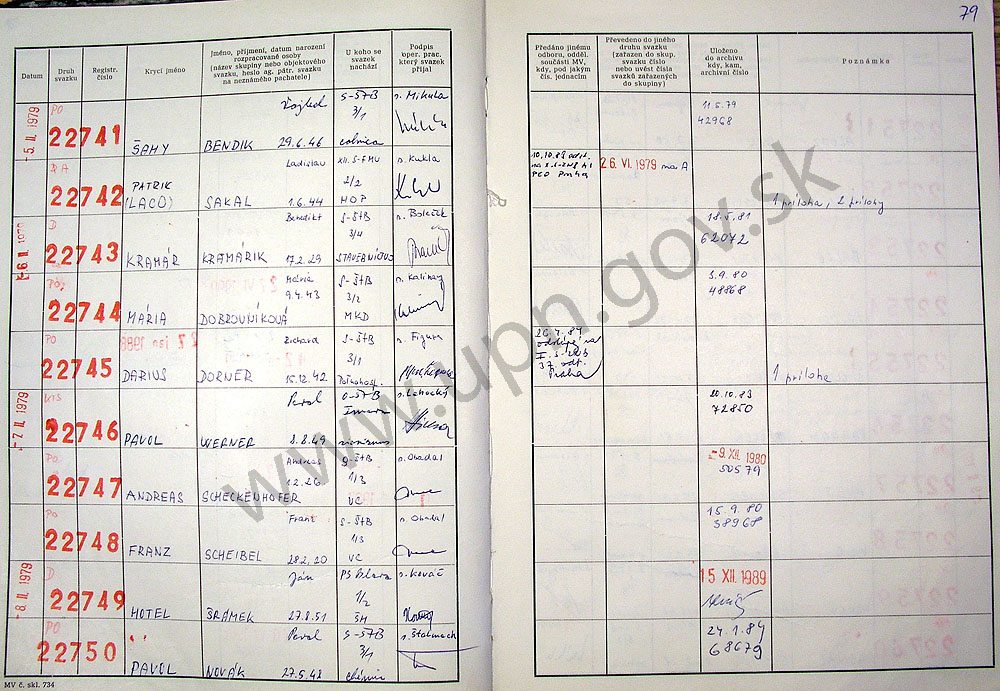 79
Datum
Druh svazku
Registr. číslo
Krycí jméno
Jméno, příjmení, datum narození
rozpracované osoby
(název skupiny nebo objektového
svazku, heslo ag. pátr. svazku
na neznámého pachatele)
U koho se
svazek
nachází
Podpis
oper. prac.
který svazek
přijal
Předáno jinému
odboru, odděl.
součásti MV,
kdy, pod jakým
čís. jednacím
Převedeno do jiného
druhu svazku
(zařazen do skup.
svazků číslo
nebo uvést čísla
svazků zařazených
do skupiny)
Uloženo
do archivu
kdy, kam,
archivní číslo
Poznámka
-5. II. 1979
PO
22741
ŠAMY
BENDIK 29.6.46
S-ŠTB
3/1
colnica
n. Mikula
11.5.79
42968
22742
PATRIK
(LACO)
Ladislav
SAKAL 1.6.44
XII. S-FMV
2/2
MOP
n. Kukla
26. VI. 1979 na A
1 príloha, 2 prílohy
-6. II. 1979
D
22743
KRAMÁR
Benedikt
KRAMÁRIK 17.2.29
S-ŠTB
3/4
n. Boleček
18.5.81
62072
22744
MÁRIA
Mária
9.4.43
DOBROVNIKOVÁ
S-ŠTB
3/2
MKD
n. Kalinay
3.9.80
48868
PO
22745
DARIUS
Richard
DORNER 15.12.42
S-ŠTB
3/1
n. Figura
26.4.84
Praha
1 príloha
-7. II. 1979
22746
PAVOL
Pavol
WERNER 8.8.49
sionizmus
n. Lehocký
20.10.83
72850
PO
22747
ANDREAS
Andreas
12.26
SCHECKENHOFER
S-ŠTB
1/3
VC
n. Ohadal
-9. XII. 1980
50579
PO
22748
FRANZ
Franz
SCHEIBEL 28.2.20
S-ŠTB
1/3
VC
n. Ohadal
15.9.80
38968
-8. II. 1979
D
22749
HOTEL
Ján
ŠRÁMEK 27.8.51
1/2
ŠM
n. Kováč
15 XII. 1989
PO
22750
PAVOL
Pavol
NOVÁK 27.5.43
S-ŠTB
3/1
chémia
24.1.84
68679
MV č. skl. 734
www.upn.gov.sk